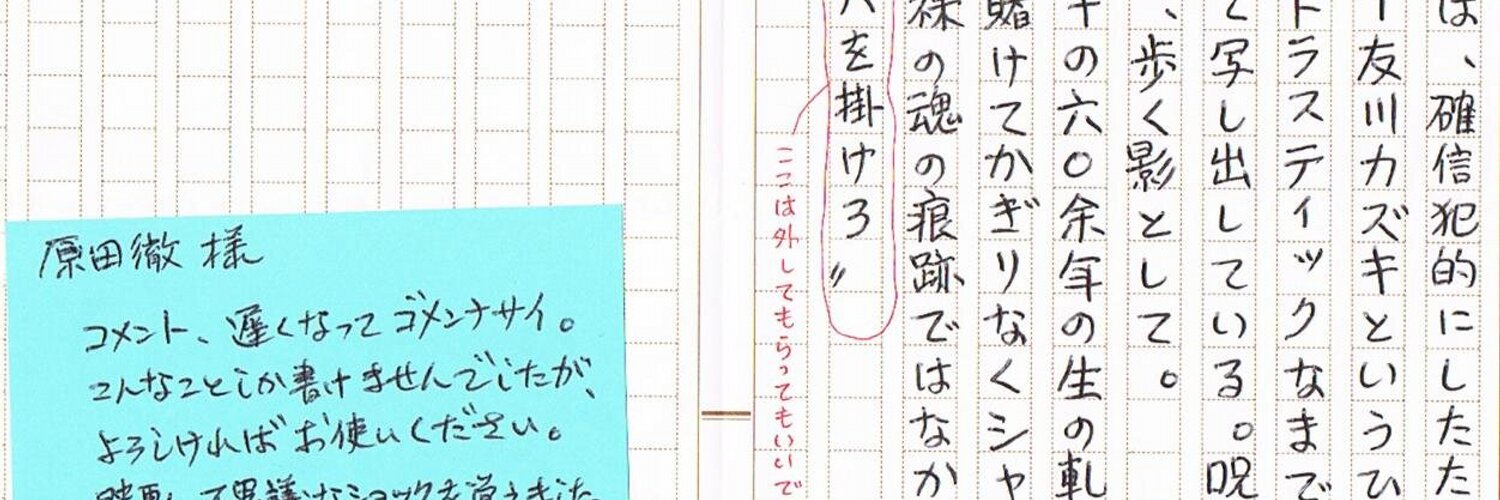 は、確信犯的にしたた
ー友川カズキというひ
トラスティックなまで
て写し出している。呪
、歩く影として。
の六〇余年の生の軌
賭けてかぎりなくシャ
裸の魂の痕跡ではなか
を掛けろ〃
ここは外してもらってもいいで
原田徹 様
コメント、遅くなってゴメンナサイ。
こんなことしか書けませんでしたが、
よろしければお使いください。
ショックを覚えました